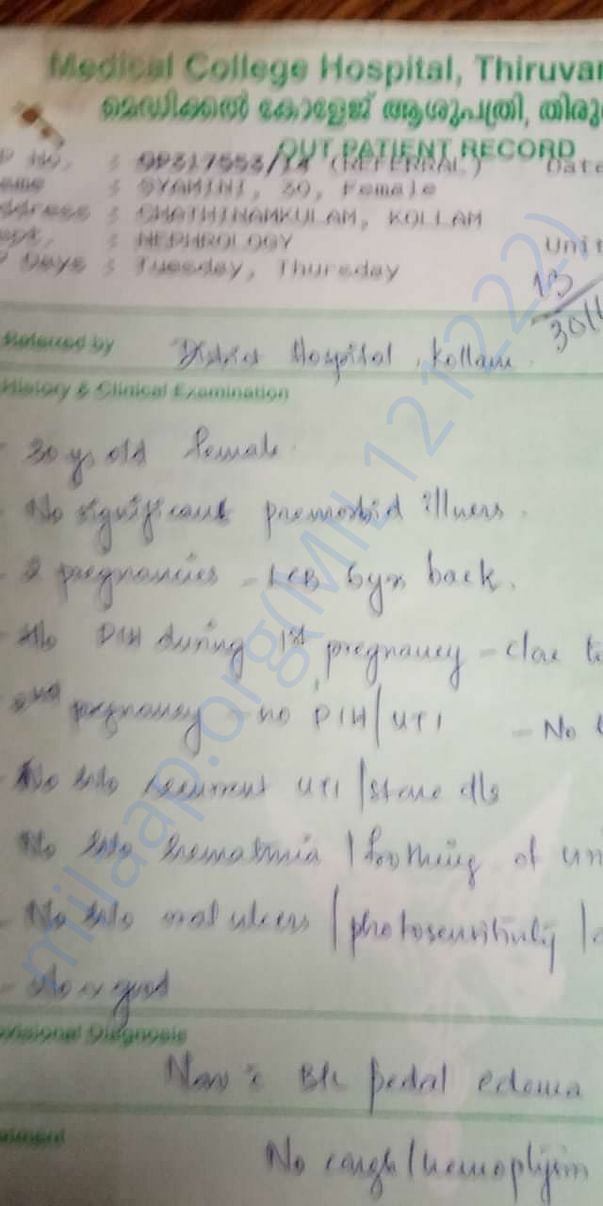 Medical College Hospital, Thiruvan
മെഡിക്കൽ കോളേജ് ആശുപത്രി, തിരു
OUT PATIENT RECORD
P No. : OP317553/14 (REFERRAL) Date
ame : SYAMINI, 30, Female
ddress : CHATHINAMKULAM, KOLLAM
ept. : NEPHROLOGY Unit
P Days : Tuesday, Thursday
Referred by District Hospital, Kollam.
History & Clinical Examination
- 30 yr old female.
- No significant premorbid illness.
- 2 pregnancies - LCB 6yrs back.
- H/o PIH during 1st pregnancy -
2nd pregnancy - no PIH/UTI - No
- No h/o recurrent UTI / stone d/s
No h/o hematuria / frothing of uri
- No h/o oral ulcers / photosensitivity /
ovisional Diagnosis
Now c̄ B/L pedal edema
eatment
No cough / hemoptysis
milaap.org(MIL121222)